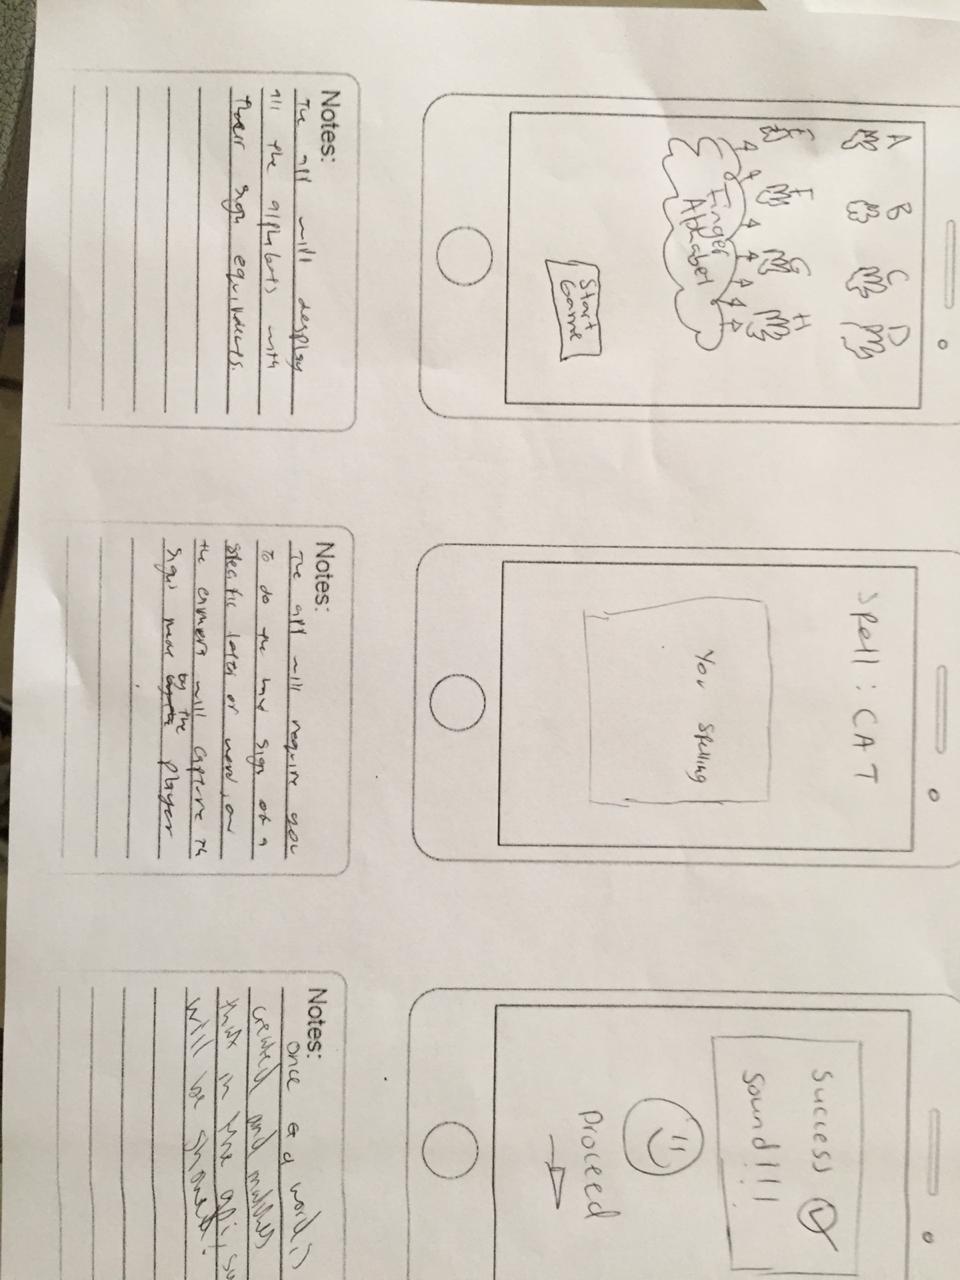 A B C D
E F G H
Finger
Alphabet
Start
Game
Notes:
The app will desplay
all the alphabets with
their sign equivalents.
Spell : CAT
Your Spelling
Notes:
The app will require you
To do the hand sign of a
specific letter or word, and
the camera will capture th
sign made by the player
Success
Sound!!!
Proceed
Notes:
Once a word is
created and matches
that in the api, su
will be showed!